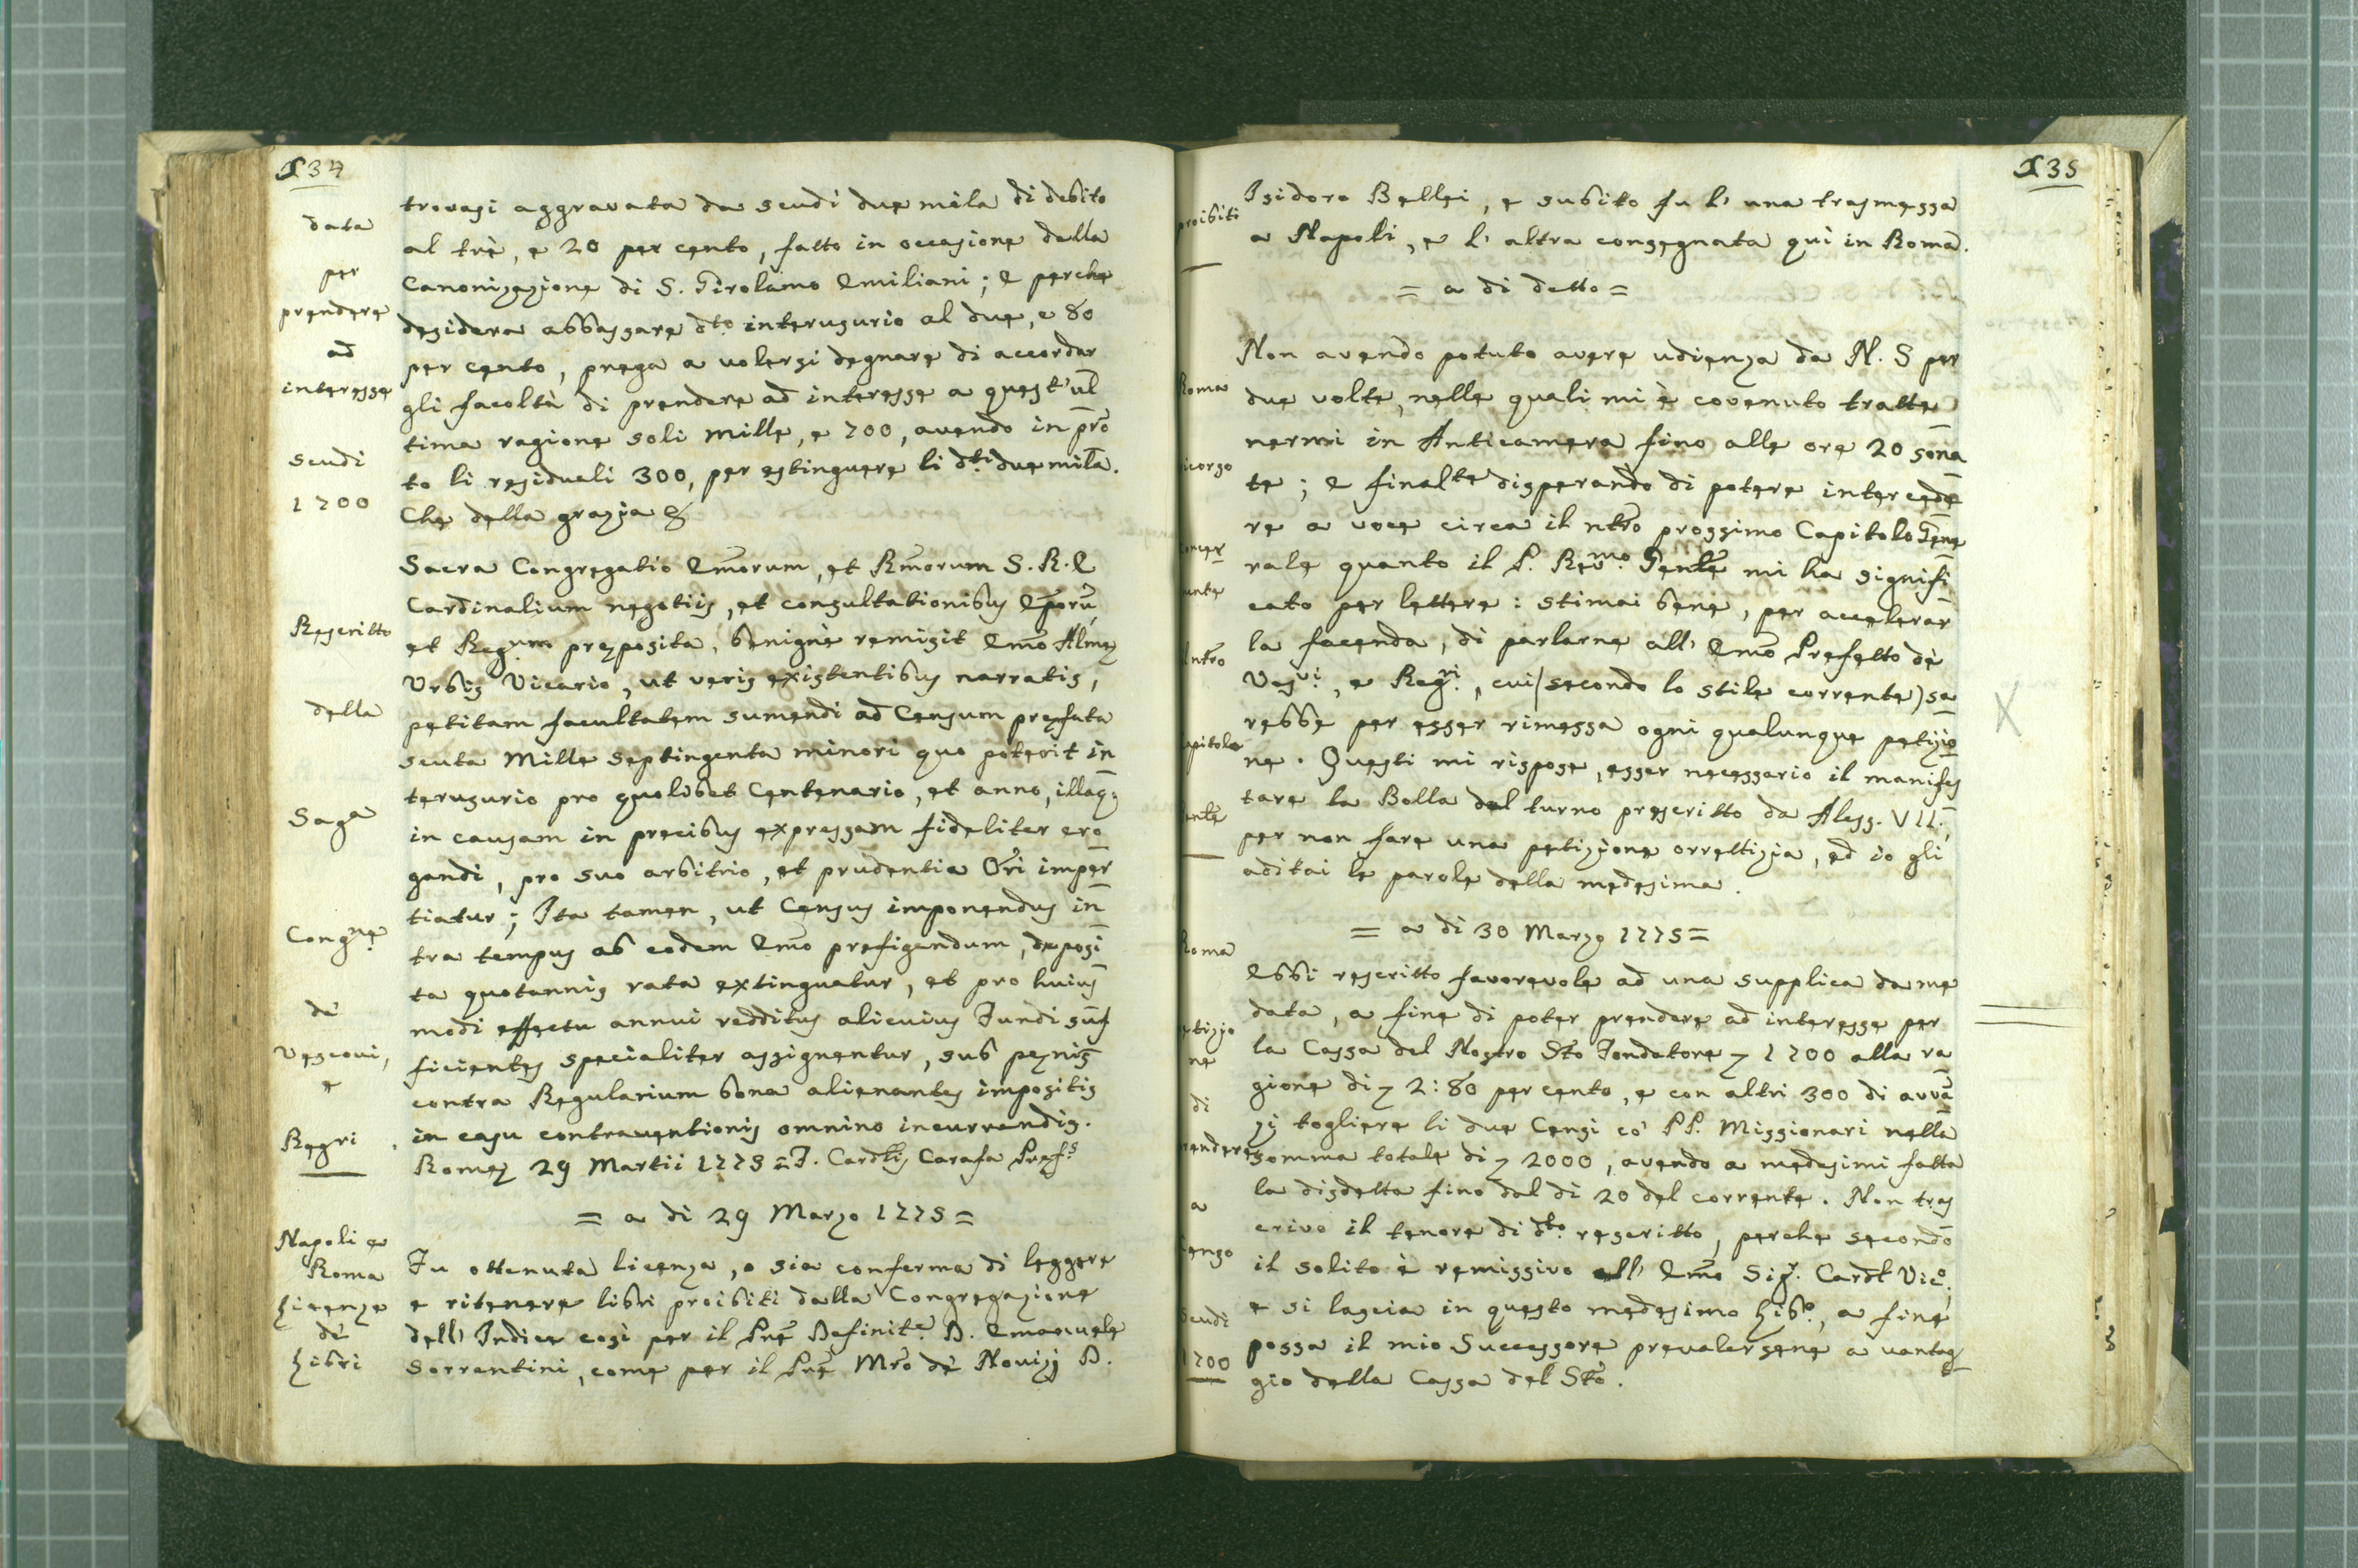 134
data
per
prendere
ad
interesse
scudi
1700
Rescritto
della
Saga
Congne
de'
Vescovi,
e
Regri
Napoli e
Roma
Licenze
de'
Libri
trovasi aggravata da scudi due mila di debito
al trè, e 20 per cento, fatto in occasione della
Canonizazione di S. Girolamo Emiliani; e perche
desidera abbassare dto interusurio al due, e 80
per cento, prega a volersi degnare di accordar
gli facoltà di prendere ad interesse a quest'ul
tima ragione soli mille, e 700, avendo in pro
to li residuali 300, per estinguere li dti due mila.
Che della grazia &
Sacra Congregatio Emorum, et Rmorum S. R. E
Cardinalium negotiis, et consultationibus Eporu,
et Regum preposita, benignè remisit Emo Alme
Urbis Vicario, ut veris existentibus narratis,
petitam facultatem sumendi ad Censum prefata
scuta Mille Septingenta minori quo poterit in
terusurio pro quolibet Centenario, et anno, illaq;
in causam in precibus expressam fideliter ero
gandi, pro suo arbitrio, et prudentia Ori imper
tiatur; Ita tamen, ut Census imponendus in
tra tempus ab eodem Emo prefigendum, deposi
ta quotannis rata extinguatur, et pro huius
modi effectu annui redditus alicuius Fundi suf
ficientes specialiter assignentur, sub penis
contra Regularium bona alienantes impositis
in casu contraventionis omnino incurrendis.
Rome 29 Martii 1775 = F. Cardlis Carafa Prefs
= a di 29 Marzo 1775 =
Fu ottenuta licenza, o sia conferma di leggere
e ritenere libri proibiti dalla Congregazione
dell' Indice così per il Pre Definite. D. Emanuele
Sorrentini, come per il Pre Mro de' Novizj D.
135
proibiti
Roma
icorso
concer
ente
l ntro
apitolo
ente
Roma
etizio
ne
di
rendere
a
Censo
Scudi
1700
Isidoro Bellei, e subito fu l' una trasmessa
a Napoli, e l' altra consegnata quì in Roma.
= a di detto =
Non avendo potuto avere udienza da N. S per
due volte, nelle quali mi è covenuto tratte
nermi in Anticamera fino alle ore 20 sona
te; e finalte disperando di potere intercede
re a voce circa il ntro prossimo Capitolo Gene
rale quanto il P. Revmo Genle mi ha signifi
cato per lettere: stimai bene, per accelerar
la facenda, di parlarne all' Emo Prefetto de'
Vesvi, e Regri, cui (secondo lo stile corrente) sa
rebbe per esser rimessa ogni qualunque petizio
ne. Questi mi rispose, esser necessario il manifes
tare la Bolla del turno prescritto da Aless. VII.,
per non fare una petizione orrettizia, ed io gli
aditai le parole della medesima.
= a di 30 Marzo 1775 =
Ebbi rescritto favorevole ad una supplica da me
data, a fine di poter prendere ad interesse per
la Cassa del Nostro Sto Fondatore 7 1700 alla ra
gione di 7 2:80 per cento, e con altri 300 di avva
zi togliere li due Censi co' PP. Missionari nella
somma totale di 7 2000, avendo a medesimi fatta
la disdetta fino dal di 20 del corrente. Non tras
crivo il tenore di dto. rescritto, perche secondo
il solito è remissivo all' Emo Sigr. Cardl Vico.,
e si lascia in questo medesimo Libo, a fine
possa il mio Successore prevalersene a vantag
gio della Cassa del Sto.